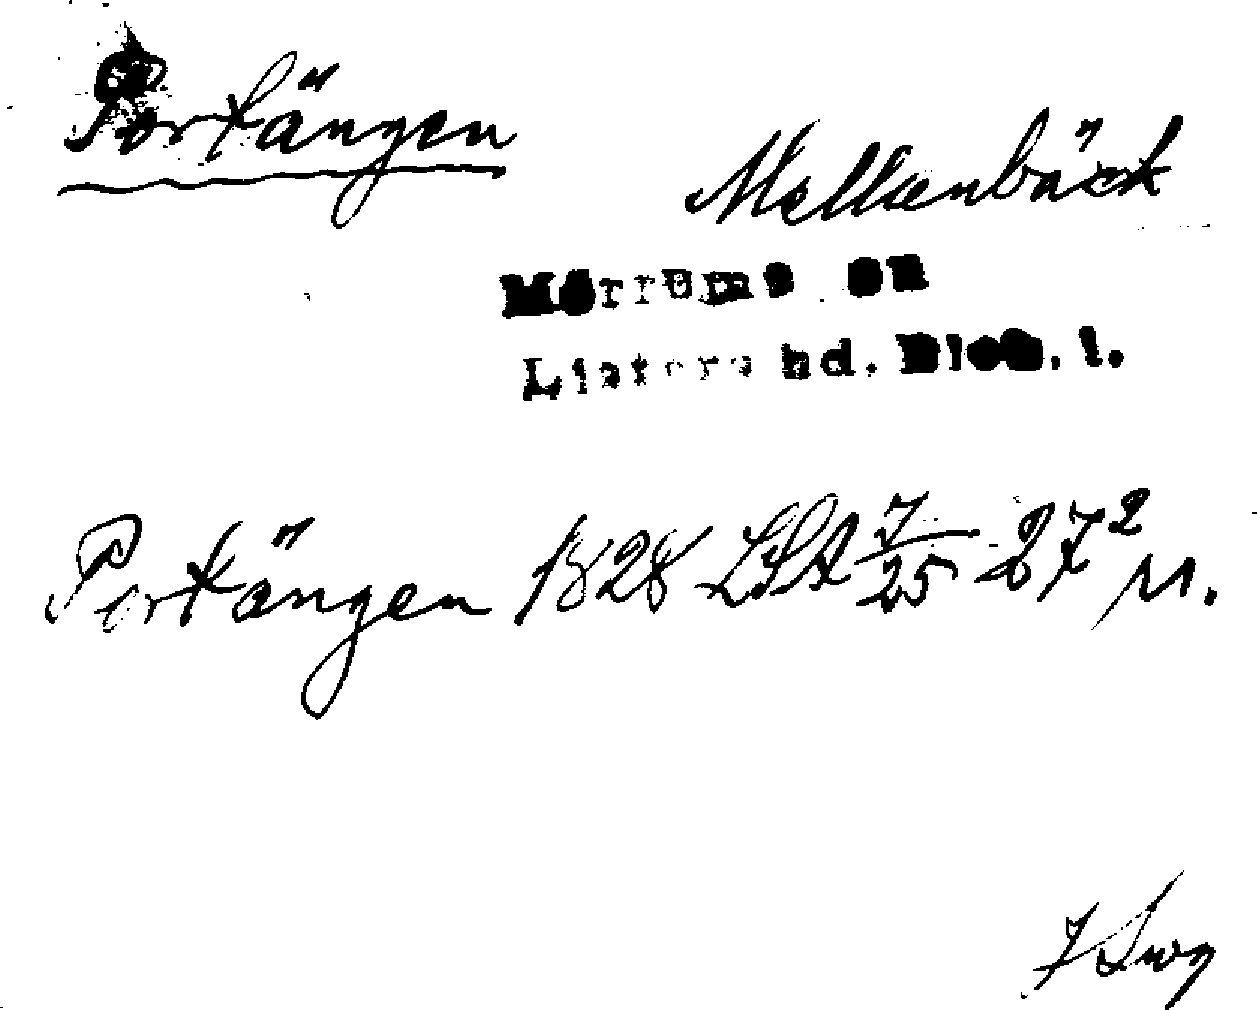 Portängen
Mellanbäck
Mörrums sn
Listers hd. Blek. l.
Portängen 1828 LSA 7/25 - 27² M.